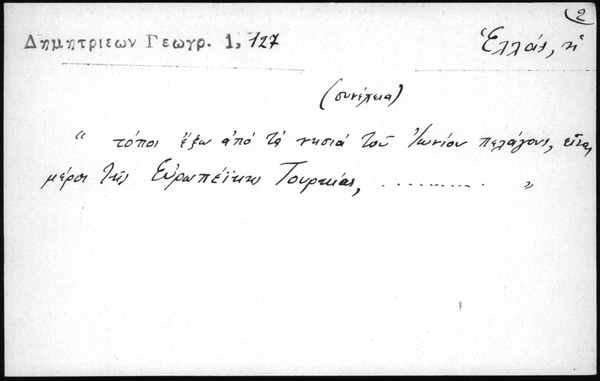 2
Δημητριεων Γεωγρ. 1, 127
Ἑλλάς, ἡ
(συνέχεια)
“ τόποι ἔξω ἀπό τά νησιά τοῦ Ἰωνίου πελάγους, εἶναι
μέρος τῆς Εὐρωπεϊκης Τουρκίας, .......... ”